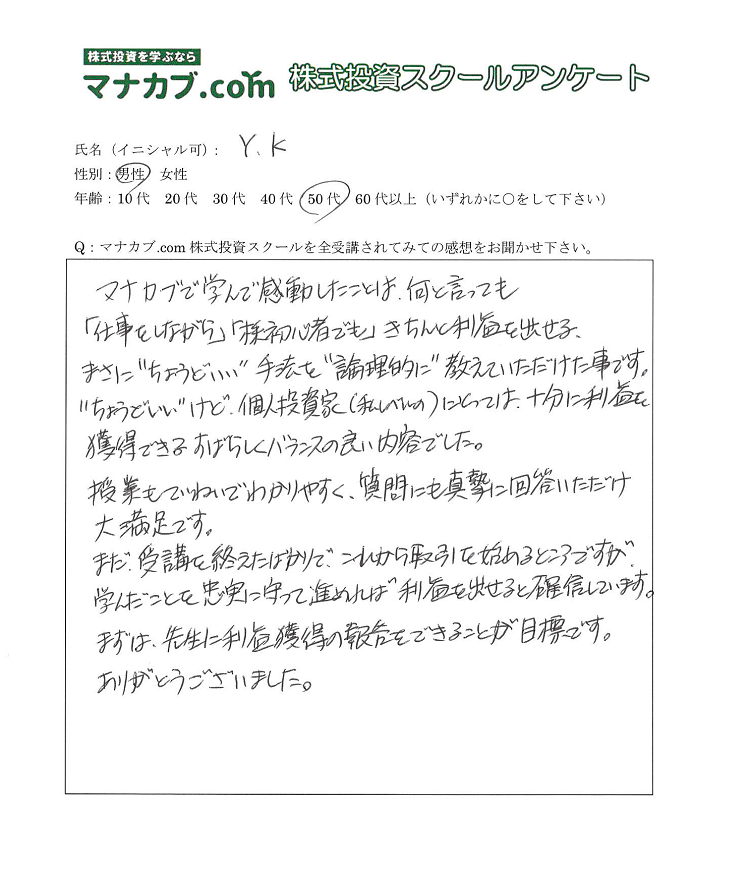 株式投資を学ぶなら
マナカブ.com 株式投資スクールアンケート
氏名（イニシャル可）： Y.K
性別：男性 女性
年齢：10代 20代 30代 40代 50代 60代以上（いずれかに○をして下さい）
Q：マナカブ.com 株式投資スクールを全受講されてみての感想をお聞かせ下さい。
マナカブで学んで感動したことは、何と言っても
「仕事をしながら」「株初心者でも」きちんと利益を出せる、
まさに"ちょうどいい"手法を"論理的に"教えていただけた事です。
"ちょうどいい"けど、個人投資家（私レベルの）にとっては、十分に利益を
獲得できるすばらしくバランスの良い内容でした。
授業もていねいでわかりやすく、質問にも真摯に回答いただけ
大満足です。
まだ、受講を終えたばかりで、これから取引を始めるところですが、
学んだことを忠実に守って進めれば利益を出せると確信しています。
まずは、先生に利益獲得の報告をできることが目標です。
ありがとうございました。